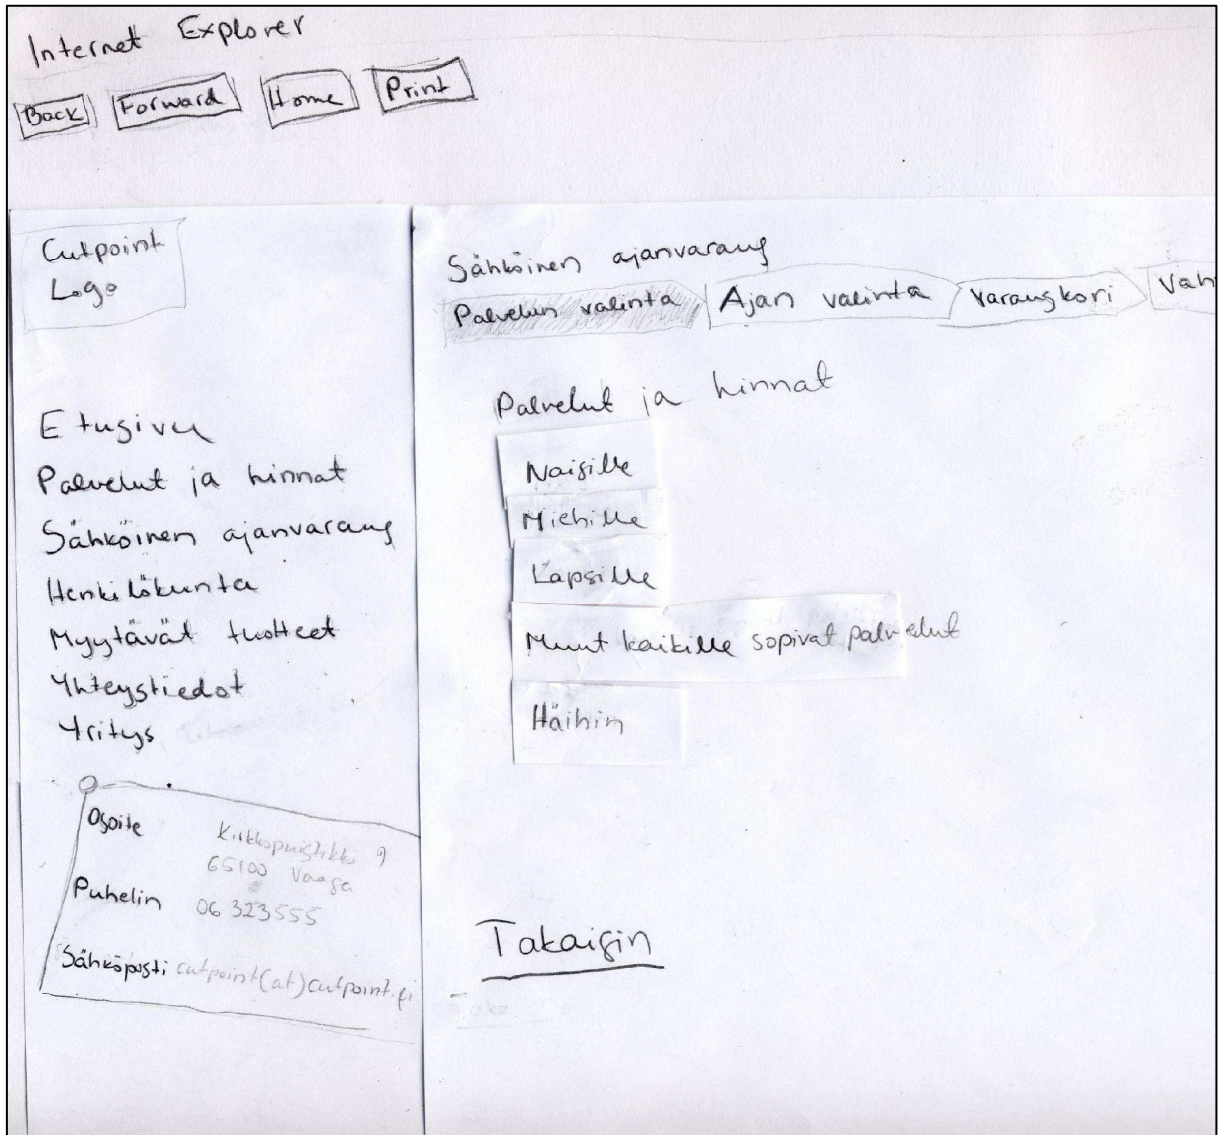 Internet Explorer
Back Forward Home Print
Cutpoint
Logo
Etusivu
Palvelut ja hinnat
Sähköinen ajanvaraus
Henkilökunta
Myytävät tuotteet
Yhteystiedot
Yritys
Osoite Kirkkopuistikko 9
65100 Vaasa
Puhelin 06 323555
Sähköposti cutpoint(at)cutpoint.fi
Sähköinen ajanvaraus
Palvelun valinta Ajan valinta Varauskori Vah
Palvelut ja hinnat
Naisille
Miehille
Lapsille
Muut kaikille sopivat palvelut
Häihin
Takaisin